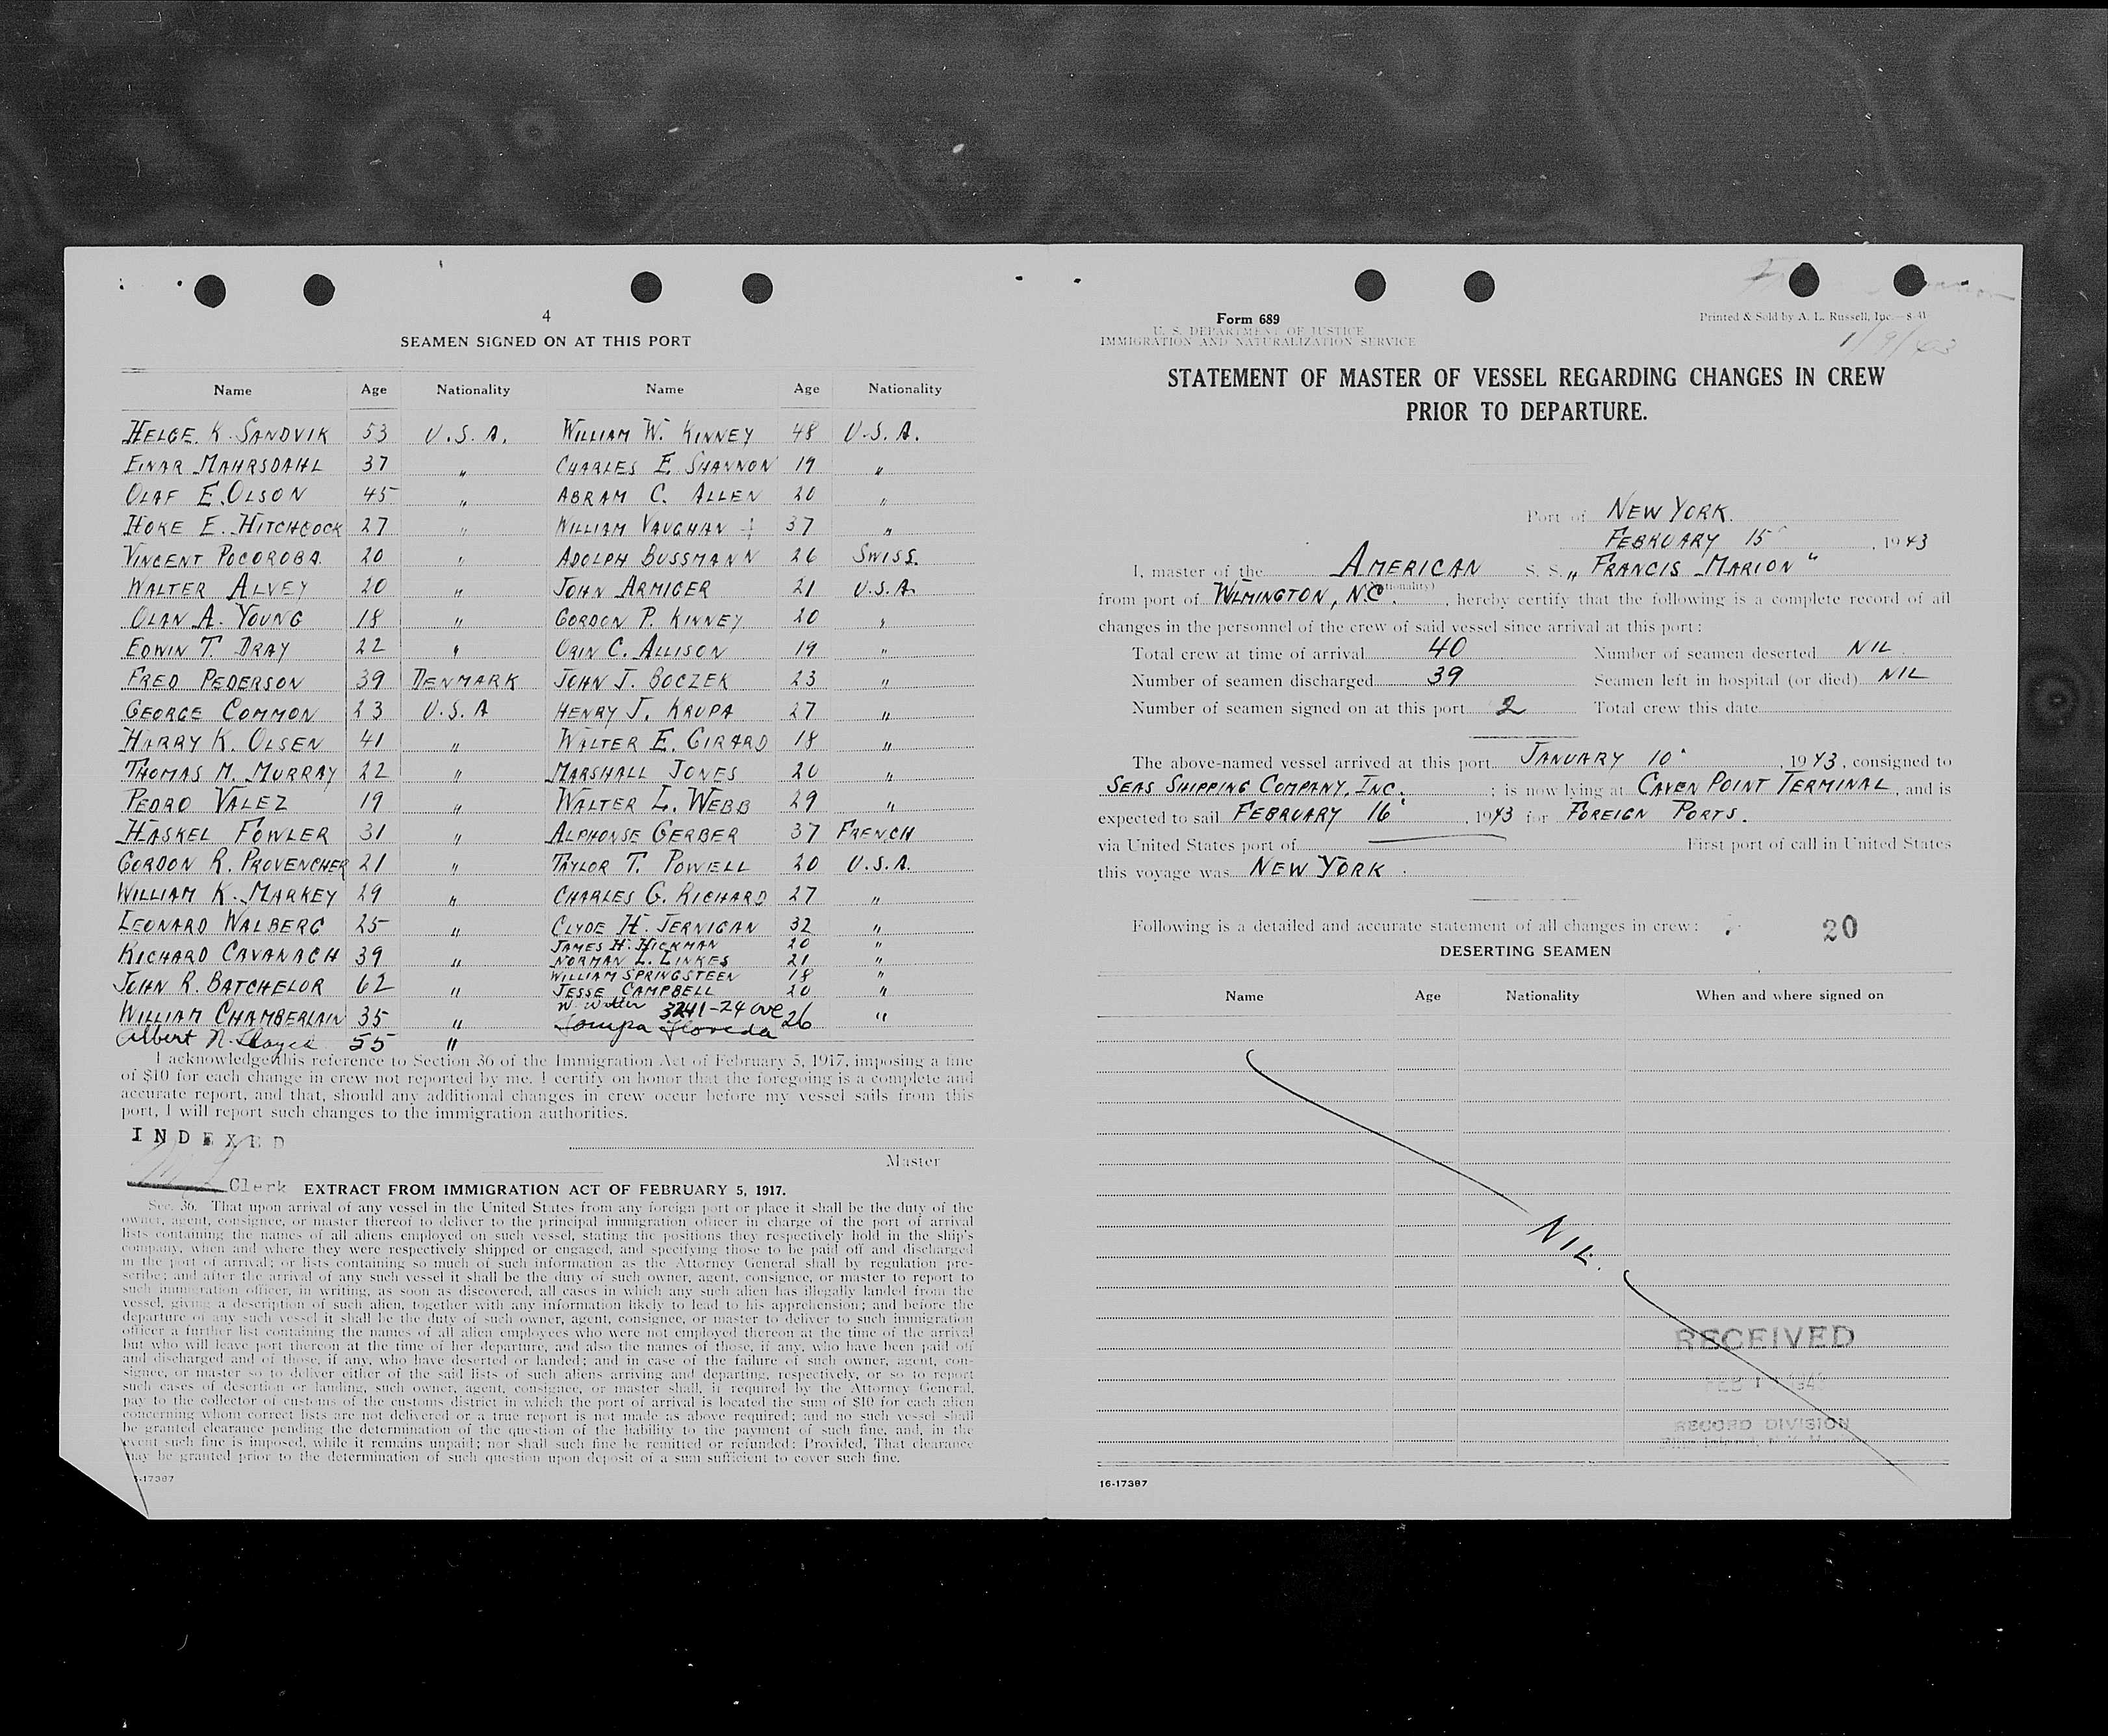 4
SEAMEN SIGNED ON AT THIS PORT
Name Age Nationality Name Age Nationality
HELGE K. SANDVIK 53 U.S.A. WILLIAM W. KINNEY 48 U.S.A.
EINAR MAHRSDAHL 37 " CHARLES E. SHANNON 19 "
OLAF E. OLSON 45 " ABRAM C. ALLEN 20 "
HOKE E. HITCHCOCK 27 " WILLIAM VAUGHAN 37 "
VINCENT POCOROBA 20 " ADOLPH BUSSMANN 26 SWISS.
WALTER ALVEY 20 " JOHN ARMIGER 21 U.S.A.
OLAN A. YOUNG 18 " GORDON P. KINNEY 20 "
EDWIN T. DRAY 22 " ORIN C. ALLISON 19 "
FRED PEDERSON 39 DENMARK JOHN J. BOCZEK 23 "
GEORGE COMMON 23 U.S.A HENRY J. KRUPA 27 "
HARRY K. OLSEN 41 " WALTER E. GIRARD 18 "
THOMAS M. MURRAY 22 " MARSHALL JONES 20 "
PEDRO VALEZ 19 " WALTER L. WEBB 29 "
HASKEL FOWLER 31 " ALPHONSE GERBER 37 FRENCH
GORDON R. PROVENCHER 21 " TAYLOR T. POWELL 20 U.S.A.
WILLIAM K. MARKEY 29 " CHARLES G. RICHARD 27 "
LEONARD WALBERG 25 " CLYDE H. JERNIGAN 32 "
JAMES H. HICKMAN 20 "
RICHARD CAVANAGH 39 " NORMAN L. LINKES 21 "
WILLIAM SPRINGSTEEN 18 "
JOHN R. BATCHELOR 62 " JESSE CAMPBELL 20 "
W. 3241-24 ave
WILLIAM CHAMBERLAIN 35 " Tampa Floreda 26 "
Albert N. 55 "
I acknowledge this reference to Section 36 of the Immigration Act of February 5, 1917, imposing a fine
of $10 for each change in crew not reported by me. I certify on honor that the foregoing is a complete and
accurate report, and that, should any additional changes in crew occur before my vessel sails from this
port, I will report such changes to the immigration authorities.
INDEXED
Master
Clerk EXTRACT FROM IMMIGRATION ACT OF FEBRUARY 5, 1917.
Sec. 36. That upon arrival of any vessel in the United States from any foreign port or place it shall be the duty of the
owner, agent, consignee, or master thereof to deliver to the principal immigration officer in charge of the port of arrival
lists containing the names of all aliens employed on such vessel, stating the positions they respectively hold in the ship's
company, when and where they were respectively shipped or engaged, and specifying those to be paid off and discharged
in the port of arrival; or lists containing so much of such information as the Attorney General shall by regulation pre-
scribe; and after the arrival of any such vessel it shall be the duty of such owner, agent, consignee, or master to report to
such immigration officer, in writing, as soon as discovered, all cases in which any such alien has illegally landed from the
vessel, giving a description of such alien, together with any information likely to lead to his apprehension; and before the
departure of any such vessel it shall be the duty of such owner, agent, consignee, or master to deliver to such immigration
officer a further list containing the names of all alien employees who were not employed thereon at the time of the arrival
but who will leave port thereon at the time of her departure, and also the names of those, if any, who have been paid off
and discharged and of those, if any, who have deserted or landed; and in case of the failure of such owner, agent, con-
signee, or master so to deliver either of the said lists of such aliens arriving and departing, respectively, or so to report
such cases of desertion or landing, such owner, agent, consignee, or master shall, if required by the Attorney General,
pay to the collector of customs of the customs district in which the port of arrival is located the sum of $10 for each alien
concerning whom correct lists are not delivered or a true report is not made as above required; and no such vessel shall
be granted clearance pending the determination of the question of the liability to the payment of such fine, and, in the
event such fine is imposed, while it remains unpaid; nor shall such fine be remitted or refunded: Provided, That clearance
may be granted prior to the determination of such question upon deposit of a sum sufficient to cover such fine.
-17387
Form 689
Printed & Sold by A. L. Russell, Inc.—8-41
U. S. DEPARTMENT OF JUSTICE
IMMIGRATION AND NATURALIZATION SERVICE
1/9/43
STATEMENT OF MASTER OF VESSEL REGARDING CHANGES IN CREW
PRIOR TO DEPARTURE.
Port of NEW YORK.
FEBRUARY 15 , 1943
I, master of the AMERICAN S. S. "FRANCIS MARION"
(Nationality)
from port of WLMINGTON, N.C. , hereby certify that the following is a complete record of all
changes in the personnel of the crew of said vessel since arrival at this port:
Total crew at time of arrival 40 Number of seamen deserted NIL
Number of seamen discharged 39 Seamen left in hospital (or died) NIL
Number of seamen signed on at this port 2 Total crew this date
The above-named vessel arrived at this port JANUARY 10 , 1943, consigned to
SEAS SHIPPING COMPANY, INC. ; is now lying at CAVEN POINT TERMINAL, and is
expected to sail FEBRUARY 16 , 1943 for FOREIGN PORTS.
via United States port of First port of call in United States
this voyage was NEW YORK.
Following is a detailed and accurate statement of all changes in crew: 20
DESERTING SEAMEN
Name Age Nationality When and where signed on
NIL.
RECEIVED
RECORD DIVISION
16-17387